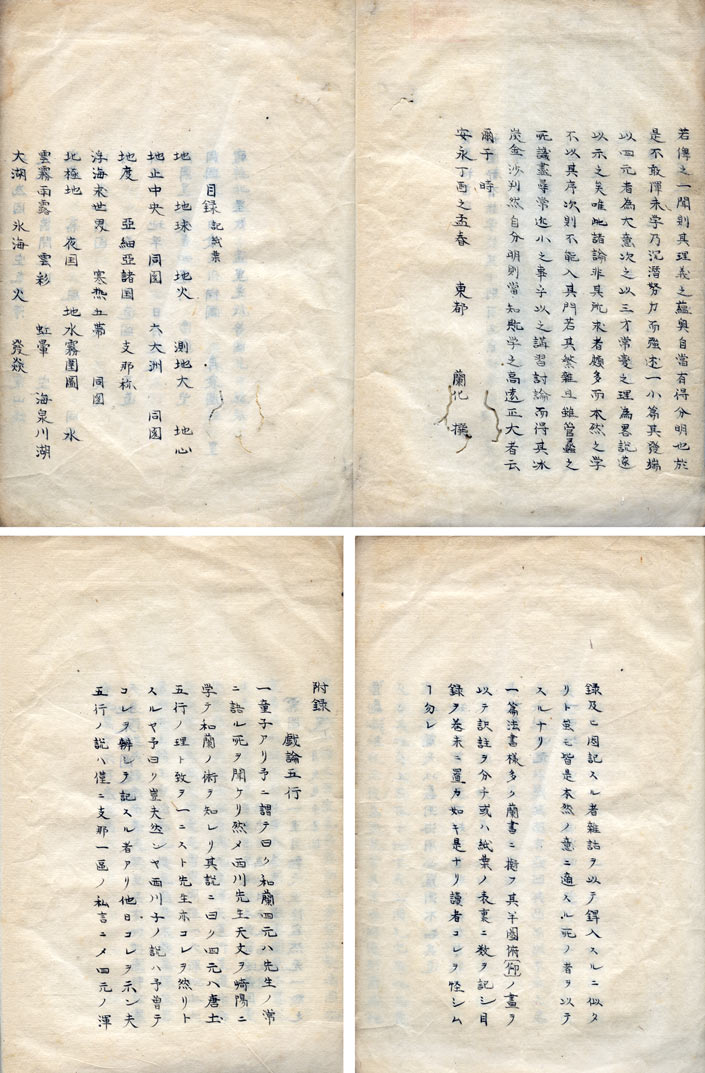 若俾之一聞則其理義之蘊奥自當有得分明也於
是不敢揮未学乃沉潜努力而強述一小篇其發端
以四元者為大意次之以三才常変之理為畧説遂
以示之矣唯此諸論非其所求者頗多而本然之学
不以其序次則不能入其門若其繁雜且雖管蠡之
所議盡尋常迩小之事乎以之講習討論而得其冰
炭金沙判然自分明則當知此学之高遠正大者云
爾于時
安永丁酉之孟春 東都 蘭化 撰
目録 記紙葉
地 地球 地火 測地大 地心
地止中央 同図 六大洲 同図
地度 亞細亞諸国 支那称
浮海来世界 寒熱五帯 同図
北極地 夜国 地水霧圍圖 水
雲霧雨露 雲彩 虹暈 海泉川湖
大湖 氷海 火 發焱
録及ヒ因記スル者雜話ヲ以テ鐸入スルニ似タ
リト茧モ皆是本然ノ意ニ適スル所ノ者ヲ以テ
スルナリ
一篇法書様多ク蘭書ニ擬フ其半圈術仰ノ畫ヲ
以テ訳註ヲ分チ或ハ紙葉ノ表裏ニ数ヲ記シ目
録ヲ巻末ニ置カ如キ是ナリ讀者コレヲ怪シム
ヿ勿レ
附録
戯論五行
一童子アリ予ニ謂テ曰ク和蘭四元ハ先生ノ常
ニ語ル所ヲ聞ケリ然メ西川先生天文ヲ崎陽ニ
学テ和蘭ノ術ヲ知レリ其説ニ曰ク四元ハ唐土
五行ノ理ト致ヲ一ニスト先生亦コレヲ然リト
スルヤ予曰ク豈夫然ンヤ西川子ノ説ハ予曽テ
コレヲ解シテ記スル者アリ他日コレヲ示ン夫
五行ノ説ハ僅ニ支那一區ノ私言ニメ四元ノ渾